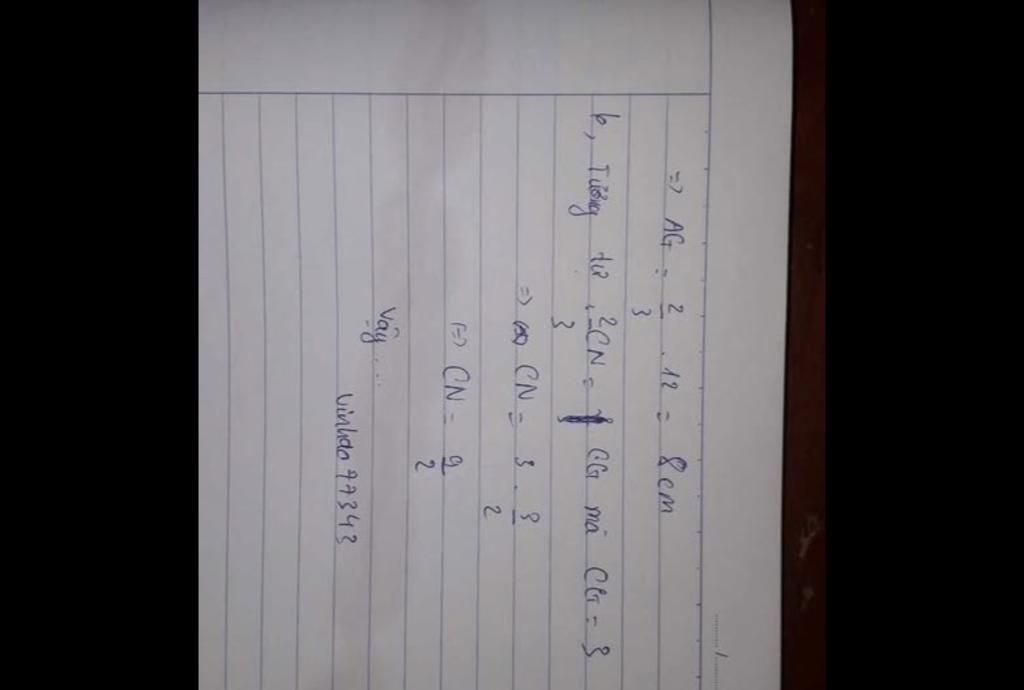 => AG = 2/3 . 12 = 8 cm
b, Tương tự, 2/3 CN = CG mà CG = 3
=> CN = 3 . 3/2
=> CN = 9/2
Vậy...
Vinhdo77343